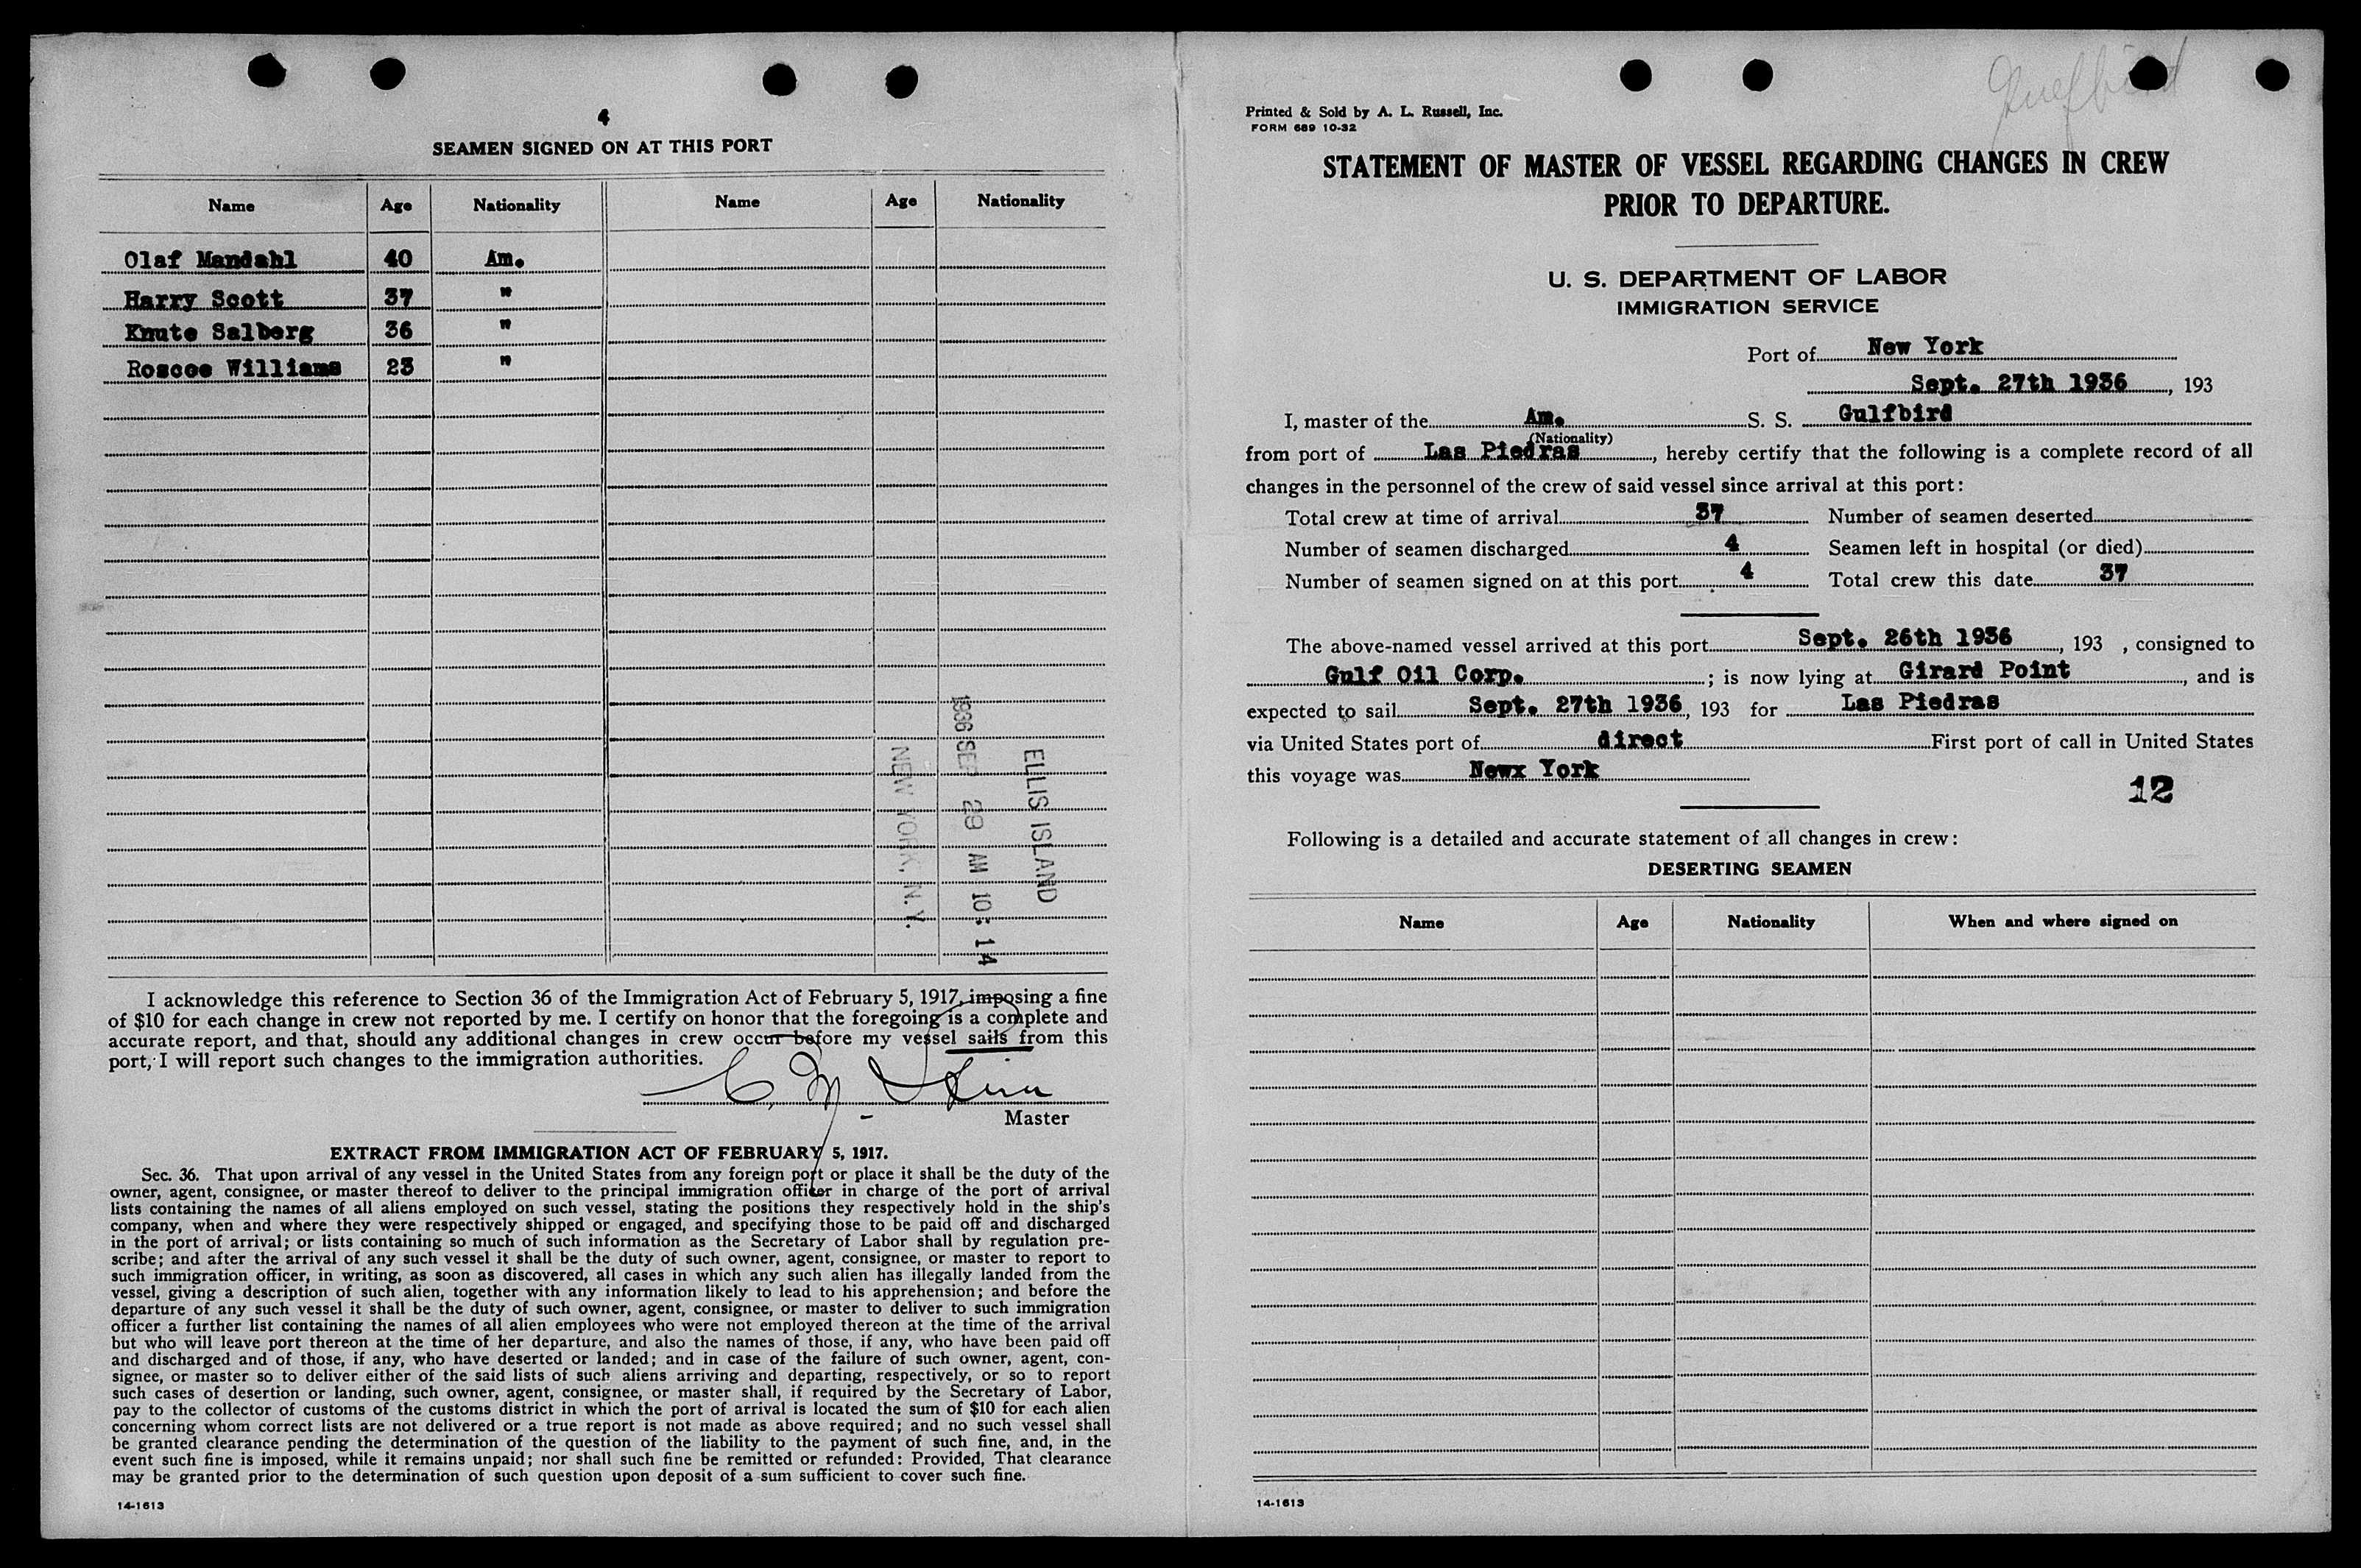 4
SEAMEN SIGNED ON AT THIS PORT
Name Age Nationality Name Age Nationality
Olaf Mandahl 40 Am.
Harry Scott 37 "
Knute Salberg 36 "
Roscoe Williams 23 "
ELLIS ISLAND
1936 SEP 29 AM 10:14
NEW YORK, N.Y.
I acknowledge this reference to Section 36 of the Immigration Act of February 5, 1917, imposing a fine
of $10 for each change in crew not reported by me. I certify on honor that the foregoing is a complete and
accurate report, and that, should any additional changes in crew occur before my vessel sails from this
port, I will report such changes to the immigration authorities.
C. M.
Master
EXTRACT FROM IMMIGRATION ACT OF FEBRUARY 5, 1917.
Sec. 36. That upon arrival of any vessel in the United States from any foreign port or place it shall be the duty of the
owner, agent, consignee, or master thereof to deliver to the principal immigration officer in charge of the port of arrival
lists containing the names of all aliens employed on such vessel, stating the positions they respectively hold in the ship's
company, when and where they were respectively shipped or engaged, and specifying those to be paid off and discharged
in the port of arrival; or lists containing so much of such information as the Secretary of Labor shall by regulation pre-
scribe; and after the arrival of any such vessel it shall be the duty of such owner, agent, consignee, or master to report to
such immigration officer, in writing, as soon as discovered, all cases in which any such alien has illegally landed from the
vessel, giving a description of such alien, together with any information likely to lead to his apprehension; and before the
departure of any such vessel it shall be the duty of such owner, agent, consignee, or master to deliver to such immigration
officer a further list containing the names of all alien employees who were not employed thereon at the time of the arrival
but who will leave port thereon at the time of her departure, and also the names of those, if any, who have been paid off
and discharged and of those, if any, who have deserted or landed; and in case of the failure of such owner, agent, con-
signee, or master so to deliver either of the said lists of such aliens arriving and departing, respectively, or so to report
such cases of desertion or landing, such owner, agent, consignee, or master shall, if required by the Secretary of Labor,
pay to the collector of customs of the customs district in which the port of arrival is located the sum of $10 for each alien
concerning whom correct lists are not delivered or a true report is not made as above required; and no such vessel shall
be granted clearance pending the determination of the question of the liability to the payment of such fine, and, in the
event such fine is imposed, while it remains unpaid; nor shall such fine be remitted or refunded: Provided, That clearance
may be granted prior to the determination of such question upon deposit of a sum sufficient to cover such fine.
14-1613
Gulfbird
Printed & Sold by A. L. Russell, Inc.
FORM 689 10-32
STATEMENT OF MASTER OF VESSEL REGARDING CHANGES IN CREW
PRIOR TO DEPARTURE.
U. S. DEPARTMENT OF LABOR
IMMIGRATION SERVICE
Port of New York
Sept. 27th 1936, 193
I, master of the Am. S. S. Gulfbird
(Nationality)
from port of Las Piedras, hereby certify that the following is a complete record of all
changes in the personnel of the crew of said vessel since arrival at this port:
Total crew at time of arrival 37 Number of seamen deserted
Number of seamen discharged 4 Seamen left in hospital (or died)
Number of seamen signed on at this port 4 Total crew this date 37
The above-named vessel arrived at this port Sept. 26th 1936, 193 , consigned to
Gulf Oil Corp. ; is now lying at Girard Point, and is
expected to sail Sept. 27th 1936, 193 for Las Piedras
via United States port of direct First port of call in United States
this voyage was Newx York
12
Following is a detailed and accurate statement of all changes in crew:
DESERTING SEAMEN
Name Age Nationality When and where signed on
14-1613